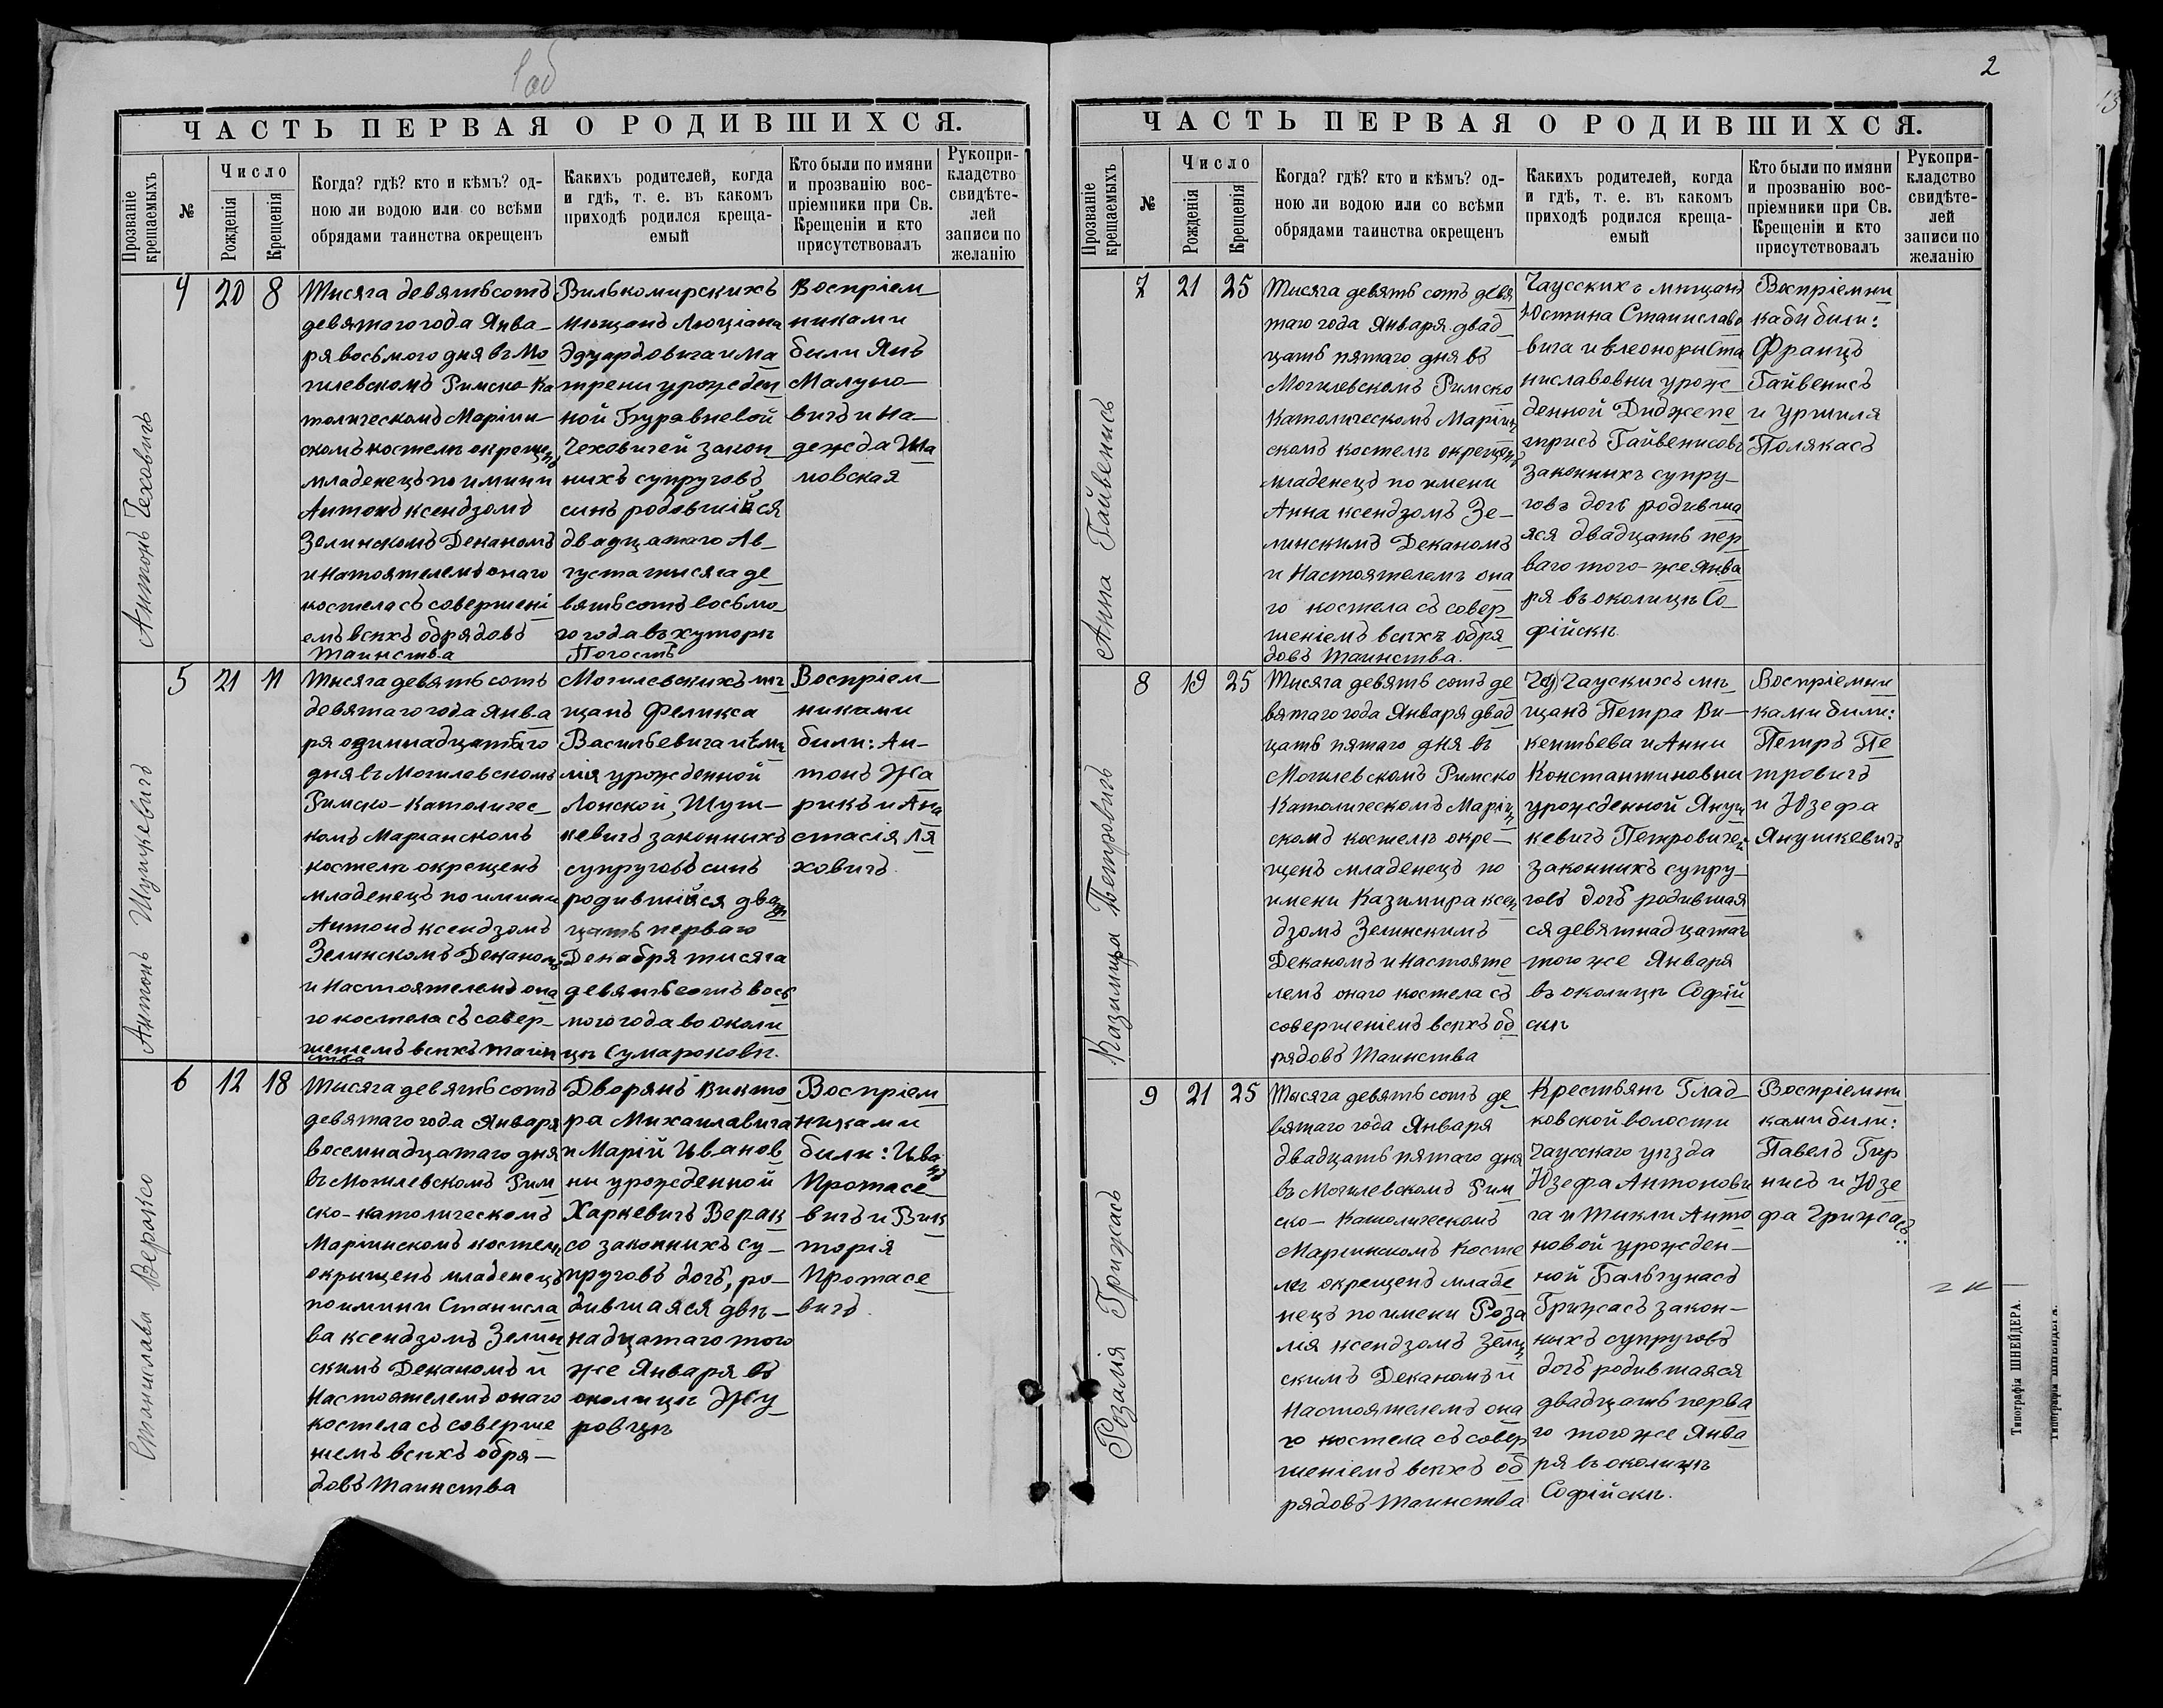 1об
ЧАСТЬ ПЕРВАЯ О РОДИВШИХСЯ.
Прозваніе крещаемыхъ
№
Число
Рожденія
Крещенія
Когда? гдѣ? кто и кѣмъ? од-
ною ли водою или со всѣми
обрядами таинства окрещенъ
Какихъ родителей, когда
и гдѣ, т. е. въ какомъ
приходѣ родился креща-
емый
Кто были по имяни
и прозванію вос-
пріемники при Св.
Крещеніи и кто
присутствовалъ
Рукопри-
кладство
свидѣте-
лей
записи по
желанію
Антонъ Чеховичъ
4
20
8
Тысяча девятьсотъ
девятаго года Янва-
ря восьмого дня въ Мо
гилевскомъ Римско-Ка
толическомъ Маріин-
скомъ костелѣ окрещенъ
младенецъ по имини
Антонъ ксендзомъ
Зелинскомъ Деканомъ
и Натоятелемъ онаго
костела съ совершені
емъ всѣхъ обрядовъ
Таинства
Вилькомирскихъ
мѣщанъ Люціана
Эдуардовича и Ма
трени урожден
ной Буравневой
Чеховичей закон
ныхъ супруговъ
сынъ родовшійся
двадцатаго Ав-
густа тысяча де
вятьсотъ восьмо
го года въ хуторѣ
Погостъ
Воспріем-
никами
были Янъ
Малуно-
вичъ и На-
дежда Ша
мовская
Антонъ Шушкевичъ
5
21
11
Тысяча девятьсотъ
девятаго года Янва
ря одиннадцатаго
дня въ Могилевскомъ
Римско-Католичес-
комъ Маріанскомъ
костелѣ окрещенъ
младенецъ по имини
Антонъ ксендзомъ
Зелинскомъ Деканомъ
и Настоятелемъ она
го костела съ совер-
шеніемъ всѣхъ таин
ства
Могилевскихъ мѣ
щанъ Феликса
Васильевича и Еми
лія урожденной
Лонской, Шуш-
кевичъ законныхъ
супруговъ сынъ
родившійся двад
цать перваго
Декабря тысяча
девятьсотъ вось
мого года во околи
цѣ Сумароковѣ.
Воспріем-
никами
были: Ан-
тонъ Жа
рикъ и Ана
стасія Ля
ховичъ.
Станислава Веракso
6
12
18
Тысяча девятьсотъ
девятаго года Января
восемнадцатаго дня
въ Могилевскомъ Рим
ско-католическомъ
Маріинскомъ костелѣ
окрищенъ младенецъ
по имини Станисла
ва ксендзомъ Зелин
скимъ Деканомъ и
Настоятелемъ онаго
костела съ соверше
ніемъ всѣхъ обря-
довъ Таинства
Дворянъ Викто
ра Михаилавича
и Марій Иванов
ны урожденной
Харкевичъ Верак
со законныхъ су-
пруговъ дочь, ро-
дившаяся двѣ-
надцатаго того
же Января въ
околицѣ Жу
ровцѣ
Воспріем
никами
были: Иванъ
Протасе
вичъ и Вик
торія
Протасе
вичъ.
2
ЧАСТЬ ПЕРВАЯ О РОДИВШИХСЯ.
Прозваніе крещаемыхъ
№
Число
Рожденія
Крещенія
Когда? гдѣ? кто и кѣмъ? од-
ною ли водою или со всѣми
обрядами таинства окрещенъ
Какихъ родителей, когда
и гдѣ, т. е. въ какомъ
приходѣ родился креща-
емый
Кто были по имяни
и прозванію вос-
пріемники при Св.
Крещеніи и кто
присутствовалъ
Рукопри-
кладство
свидѣте-
лей
записи по
желанію
Анна Гайвенисъ
7
21
25
Тысяча девять сотъ девя
таго года Января двад
цать пятаго дня въ
Могилевскомъ Римско
Католическомъ Маріин
скомъ костелѣ окрещенъ
младенецъ по имени
Анна ксендзомъ Зе-
линскимъ Деканомъ
и Настоятелемъ она
го костела съ совер
шеніемъ всѣхъ обря
довъ Таинства.
Чаусскихъ мѣщанъ
Юстина Станиславо
вича и Элеоноры Ста
ниславовны урож
денной Диджпе
трисъ Гайвенисовъ
законныхъ супру-
говъ дочь родивша
яся двадцать пер
ваго того-же Янва
ря въ околицѣ Со-
фійскѣ.
Воспріемни
каби были:
Францъ
Гайвенисъ
и Уршиля
Полякасъ
Казимира Петровичъ
8
19
25
Тысяча девять сотъ де
вятаго года Января двад
цать пятаго дня въ
Могилевскомъ Римско
Католическомъ Маріин
скомъ костелѣ окре-
щенъ младенецъ по
имени Казимира ксен
дзомъ Зелинскимъ
Деканомъ и Настояте
лемъ онаго костела съ
совершеніемъ всѣхъ об
рядовъ Таинства
Чаускихъ мѣ-
щанъ Петра Ви-
кентьева и Анны
Константиновны
урожденной Януш
кевичъ Петровичей
законныхъ супру-
говъ дочь родившая
ся девятнадцатаго
того же Января
въ околицѣ Софій
скѣ
Воспріемни
ками были:
Петръ Пе
тровичъ
и Юзефа
Янушкевичъ
Розалія Грижасъ
9
21
25
Тысяча девять сотъ де
вятаго года Января
двадцать пятаго дня
въ Могилевскомъ Рим
ско-Католическомъ
Маріинскомъ Косте
лѣ окрещенъ младе
нецъ по имени Роза
лія ксендзомъ Зелин
скимъ Деканомъ и
Настоятелемъ она
го костела съ совер
шеніемъ всѣхъ об
рядовъ Таинства
Крестьянъ Глад-
ковской волости
Чаусскаго уѣзда
Юзефа Антонови
ча и Теkли Анто
новой урожден-
ной Бальчунасъ
Грижасъ закон-
ныхъ супруговъ
дочь родившаяся
двадцать перва
го того же Янва
ря въ околицѣ
Софійскѣ.
Воспріемни
ками были:
Павелъ Гир
нисъ и Юзе
фа Грижасъ.
Типографія ШНЕЙДЕРА.
Типографія ШНЕЙДЕРА.